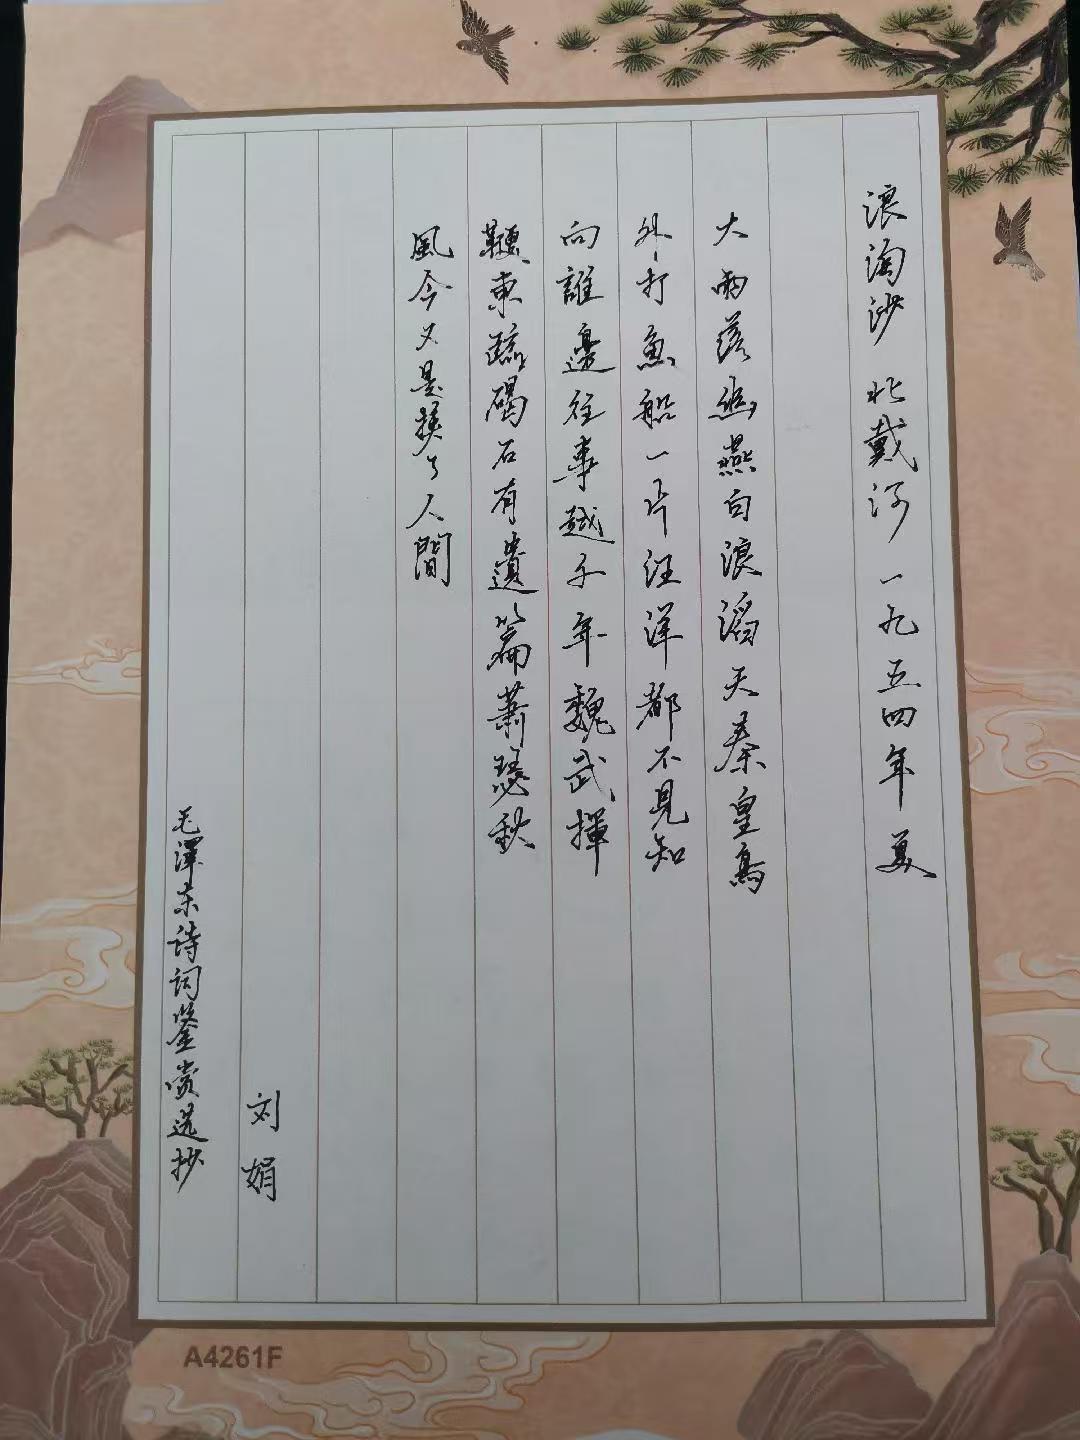 浪淘沙 北戴河 一九五四年夏
大雨落幽燕白浪滔天秦皇島
外打魚船一片汪洋都不見知
向誰邊往事越千年魏武揮
鞭東臨碣石有遺篇蕭瑟秋
風今又是換了人間
刘娟
毛澤东诗词鉴赏选抄
A4261F